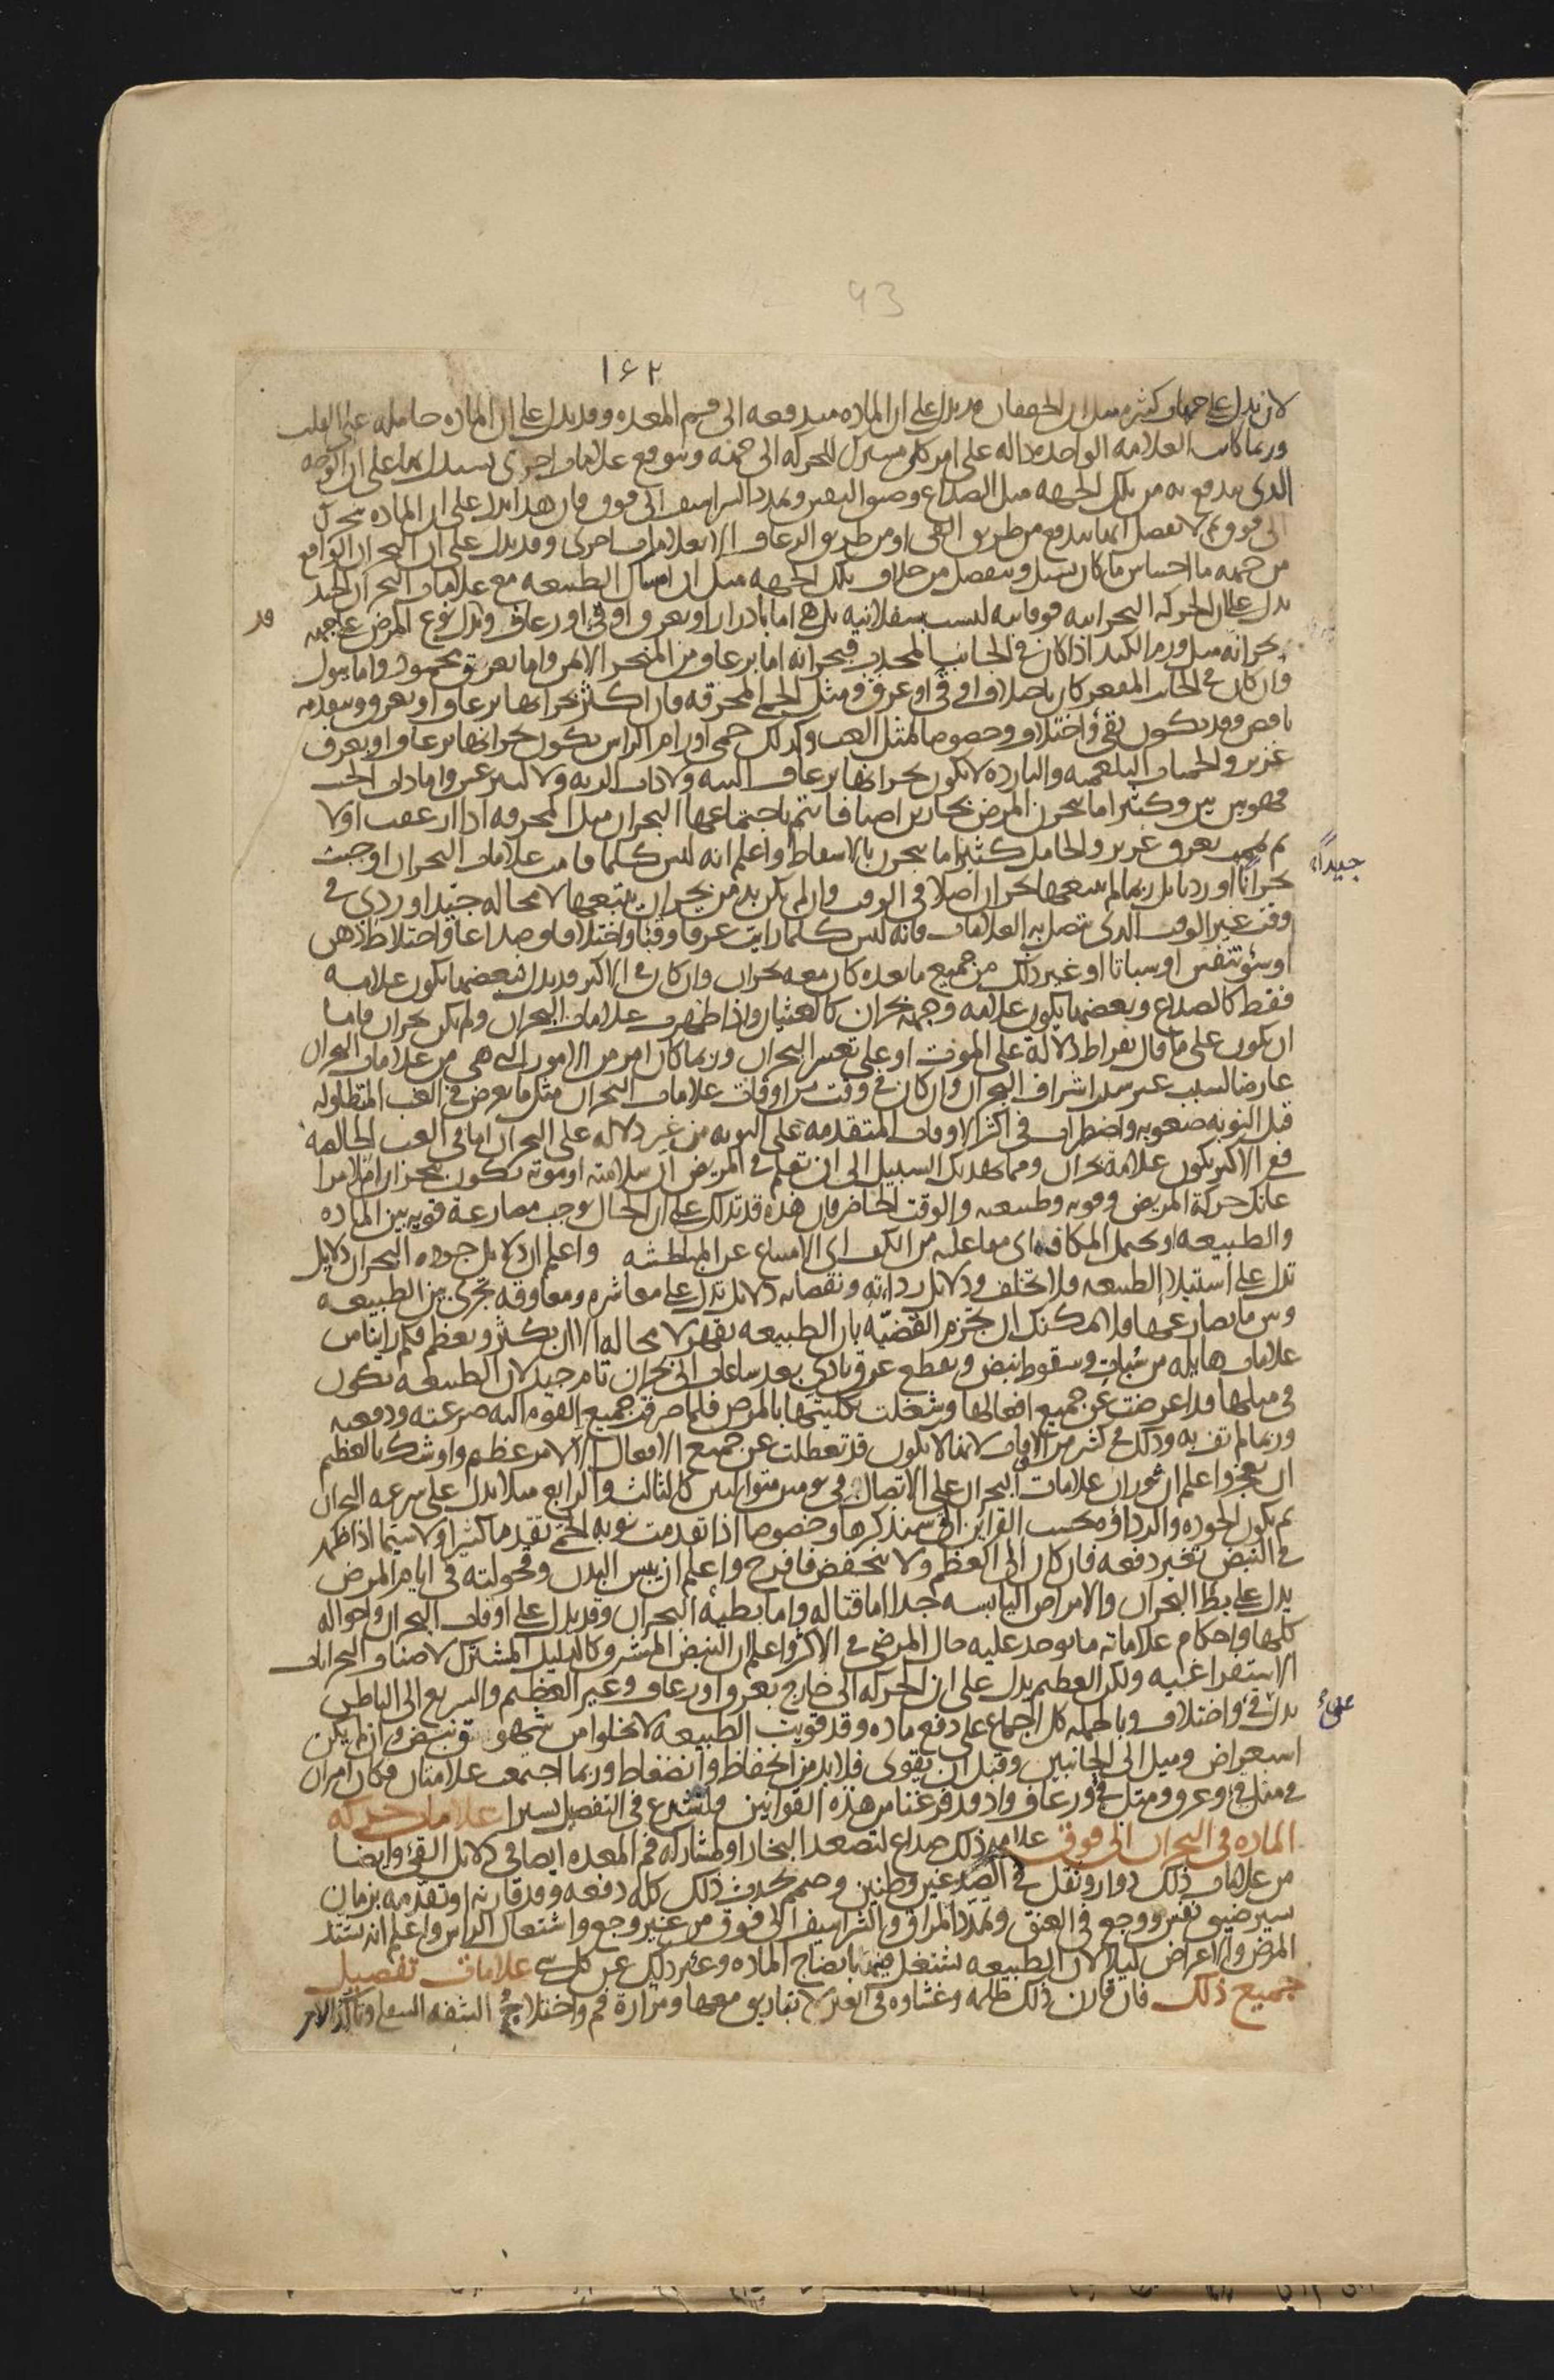 93
١٤٢
لان يدل على جهات كثيرة مثل ان الخفقان قد يدل على ان المادة مندفعه الى فم المعده وقد يدل على ان الماده حامله على القلب
وربما كانت العلامه الواحده داله على امر كلي مشترك للحركه الى جهه وتتوقع علامات اخرى يستدل بها على ان الوجه
الذي يندفع به من تلك الجهه مثل الصداع وضيق النفس وتمدد الشراسيف الى فوق فان هذا يدل على ان الماده تتحرك
الى فوق ثم لا تفصل انها تندفع من طريق القي او من طريق الرعاف الا بعلامات اخرى وقد يدل على ان البحران الواقع
من جهه ما احتباس ما كان يسيل وينفصل من خلاف تلك الجهه مثل ان امساك الطبيعه مع علامات البحران الجيد
يدل على ان الحركه البحرانيه فوقانيه ليست سفلانيه بل هي اما بادرار او بعرق او قي او رعاف وقد يدل نوع المرض على جهه
قد
بحرانه مثل ورم الكبد اذا كان في الجانب المحدب فبحرانه اما برعاف من المنخر الايمن واما بعرق محمود واما ببول
وان كان في الجانب المقعر كان باختلاف او قي او عرق ومثل الحمى المحرقه فان اكثر بحرانها برعاف او بعرق ويتقدمه
نافض وقد يكون بقي واختلاف وخصوصا لمثل الغب وكذلك حمى اورام الراس يكون بحرانها برعاف او بعرق
غزير والحميات البلغميه والبارده لا يكون بحرانها برعاف البته ولا ذات الريه ولا ليثرغس واما ذات الجنب
فهو بين بين وكثيرا ما يبحرن المرض بحارين اصنافا يتم باجتماعها البحران مثل المحرقه اذا رعفت اولا
ثم تممت بعرق غزير والحامل كثيرا ما يبحرن بالاسقاط واعلم انه ليس كلما قامت علامات البحران اوجبت
جيدا
بحرانا او رديا بل ربما لم يتبعها بحران اصلا في الوقت وان لم يكن بد من بحران يتبعها لا محاله جيد او ردي في
وقت غير الوقت الذي تتصل به العلامات فانه ليس كلما رايت عرقا وقيا واختلافا وصداعا واختلاط ذهن
او سوء تنفس او سباتا او غير ذلك من جميع ما نعده كان معه بحران وان كان في الاكثر قد يدل فبعضها يكون علامه
فقط كالصداع وبعضها يكون علامه وجهه بحران كالغثيان واذا ظهرت علامات البحران ولم يكن بحران فاما
ان يكون على ما قال بقراط دلاله على الموت او على تعسر البحران وربما كان امر من الامور التي هي من علامات البحران
عارضا لسبب غير سبب اشراف البحران وان كان في وقت من اوقات علامات البحران مثل ما يعرض في الغب المتطاوله
قبل النوبه صعوبه واضطراب في اكثر الاوقات المتقدمه على النوبه من غير دلاله على البحران اما في الغب الخالصه
ففي الاكثر يكون علامه بحران ومما يهديك السبيل الى ان تعلم في المريض ان سلامته او موته تكون ببحران ام لا مراعاتك
حركة المريض وقوته وطبيعته والوقت الحاضر فان هذه قد تدلك على ان الحال يوجب مصارعة قويه بين الماده
والطبيعه او تحمل المكافه اي مفاعله من الكف اي الامتناع عن المباطشه واعلم ان دلايل جودة البحران دلايل
تدل على استيلا الطبيعه ولا تختلف ودلايل رداءته ونقصانه دلايل تدل على معاشره ومعاوقه تجري بين الطبيعه
وبين ما يصارعها ولا يمكنك ان تجزم القضيه بان الطبيعه تقهر لا محاله الا ان يكثر ويعظم فكم راينا من
علامات هايله من سبات وسقوط نبض وتقطع عرق تادي بعد ساعات الى بحران تام جيد لان الطبيعه تكون
في مثلها قد اعرضت عن جميع افعالها وشغلت بكليتها بالمرض فلما صرفت جميع القوه اليه صرعته ودفعته
وربما لم تف به وذلك في كثير من الاوقات لانها لا يكون قد تعطلت عن جميع الافعال الا لامر عظيم واوشك بالعظيم
ان يعجز واعلم ان ثوران علامات البحران على الاتصال في يومين متواليين كالثالث والرابع مثلا يدل على سرعه البحران
ثم يكون الجوده والرداءه بحسب القراين التي سنذكرها وخصوصا اذا تقدمت نوبه الحمى تقدما كثيرا ولا سيما اذا ظهر
في النبض تغير دفعه فان كان الى العظم ولا ينخفض فافرح واعلم ان يبس البدن وقحولته في ايام المرض
يدل على بطء البحران والامراض اليابسه جدا اما قتاله واما بطيه البحران وقد يدل على اوقات البحران واحواله
كلها واحكام علاماته ما يوجد عليه حال المرضى في الاكثر واعلم ان النبض المشرف كالدليل المشترك لاصناف البحرانات
الاستفراغيه ولكن العظيم يدل على ان الحركه الى خارج بعرق او رعاف وغير العظيم والسريع الى الباطن
على
يدل في واختلاف وبالجمله كل اجماع على دفع ماده وقد قويت الطبيعه لا يخلوا من شهوق نبض وان لم يكن
استعراض وميل الى الجانبين وقبل ان يقوى فلا بد من انخفاض وانضغاط وربما اجتمعت علامتان فكان امران
في مثل قي وعرق ومثل قي ورعاف واذ قد فرغنا من هذه القوانين فلنشرع في التفصيل يسيرا علامات حركه
الماده في البحران الى فوق علامه ذلك صداع لتصعد البخار او لمشاركه فم المعده ايضا في دلايل القي وايضا
من علامات ذلك دوار وثقل في الصدغين وطنين وصمم يحدث ذلك كله دفعه وقد قارنه او تقدمه بزمان
يسير ضيق نفس ووجع في العنق وتمدد المراق والشراسيف الى فوق من غير وجع واشتعال الراس واعلم انه يشتد
المرض والاعراض ليلا لان الطبيعه تشتغل فيه بانضاج الماده وغير ذلك عن كل شي علامات تفصيل
جميع ذلك فان قارن ذلك ظلمه وغشاوه في العين لا تباريق معها ومرارة فم واختلاج الشفه السفلى وتاكد الامر